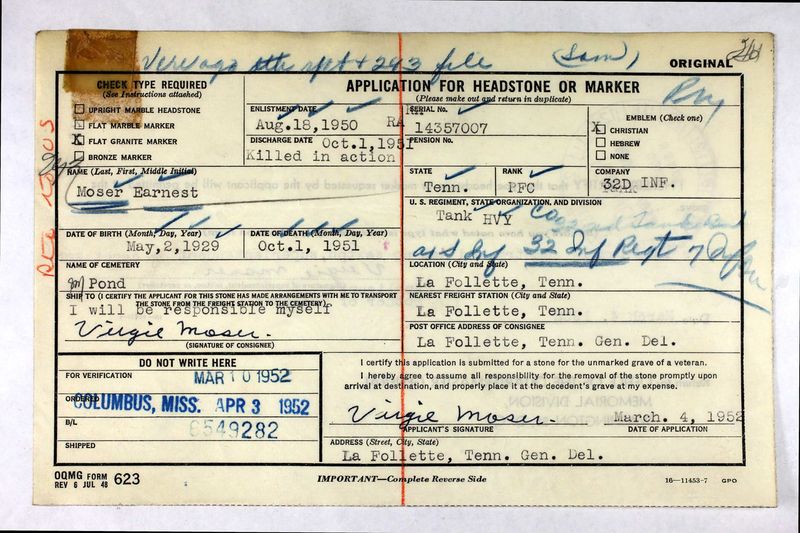 file (Sam)
ORIGINAL
CHECK TYPE REQUIRED
(See Instructions attached)
UPRIGHT MARBLE HEADSTONE
FLAT MARBLE MARKER
X FLAT GRANITE MARKER
BRONZE MARKER
APPLICATION FOR HEADSTONE OR MARKER
(Please make out and return in duplicate)
ENLISTMENT DATE
Aug.18,1950
SERIAL No.
RA 14357007
EMBLEM (Check one)
X CHRISTIAN
HEBREW
NONE
DISCHARGE DATE Oct.1,1951
Killed in action
PENSION No.
NAME (Last, First, Middle Initial)
Moser Earnest
STATE
Tenn.
RANK
PFC
COMPANY
32D INF.
U. S. REGIMENT, STATE ORGANIZATION, AND DIVISION
Tank HVY Co
32 Inf Regt 7
DATE OF BIRTH (Month, Day, Year)
May,2,1929
DATE OF DEATH (Month, Day, Year)
Oct.1, 1951
NAME OF CEMETERY
Pond
LOCATION (City and State)
La Follette, Tenn.
SHIP TO (I CERTIFY THE APPLICANT FOR THIS STONE HAS MADE ARRANGEMENTS WITH ME TO TRANSPORT
THE STONE FROM THE FREIGHT STATION TO THE CEMETERY)
I will be responsible myself
NEAREST FREIGHT STATION (City and State)
La Follette, Tenn.
Virgie Moser.
(SIGNATURE OF CONSIGNEE)
POST OFFICE ADDRESS OF CONSIGNEE
La Follette, Tenn. Gen. Del.
DO NOT WRITE HERE
FOR VERIFICATION
MAR 10 1952
ORDERED
COLUMBUS, MISS. APR 3 1952
B/L
6549282
SHIPPED
I certify this application is submitted for a stone for the unmarked grave of a veteran.
I hereby agree to assume all responsibility for the removal of the stone promptly upon
arrival at destination, and properly place it at the decedent's grave at my expense.
Virgie Moser. March. 4, 1952
APPLICANT'S SIGNATURE DATE OF APPLICATION
ADDRESS (Street, City, State)
La Follette, Tenn. Gen. Del.
OQMG FORM 623
REV 6 JUL 48
IMPORTANT—Complete Reverse Side
16—11453-7 GPO